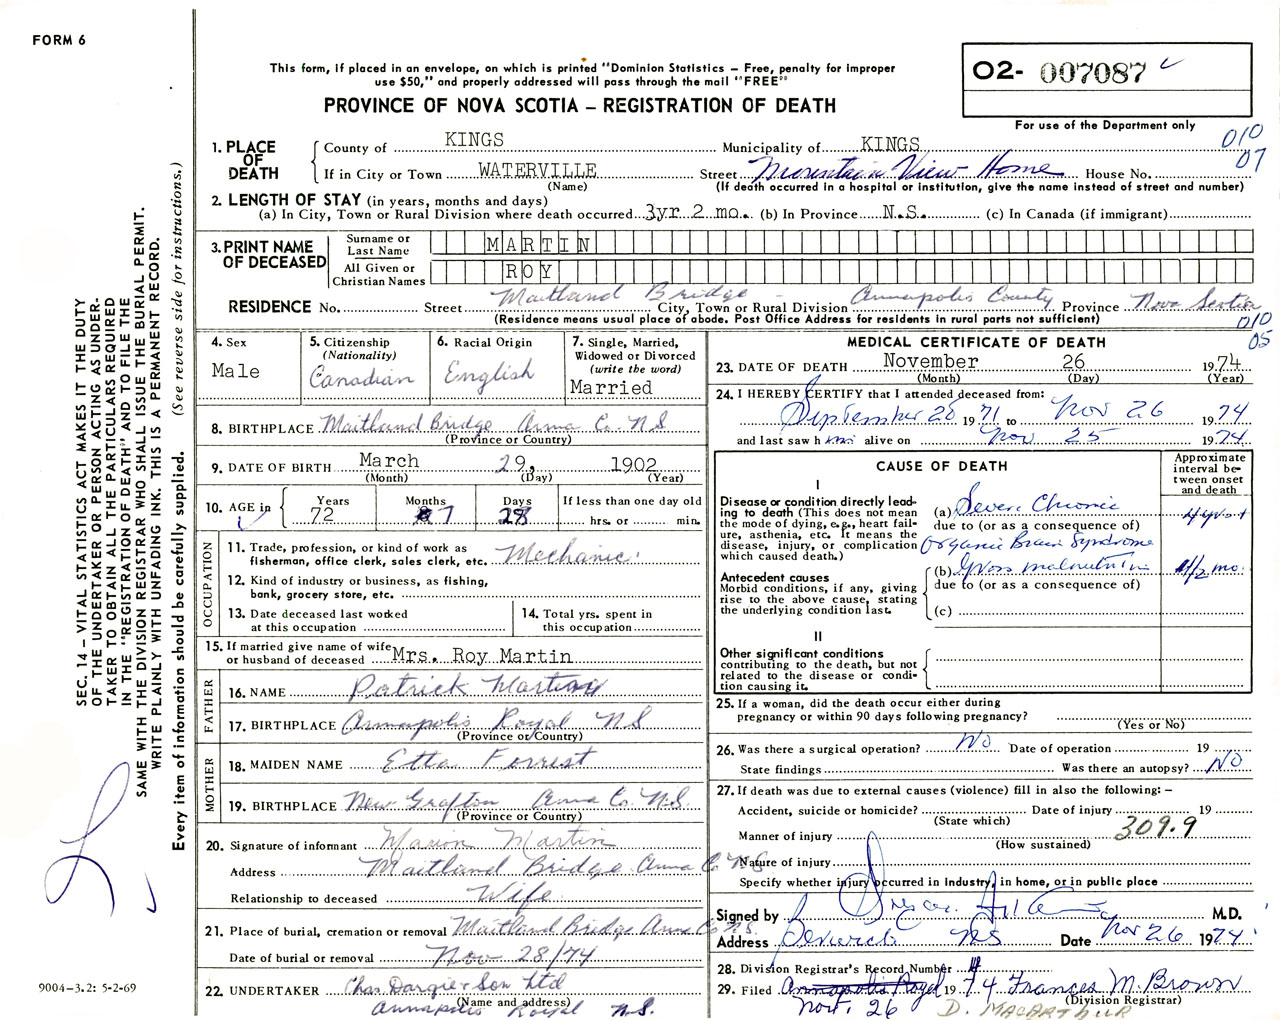 FORM 6
This form, if placed in an envelope, on which is printed "Dominion Statistics – Free, penalty for improper
use $50," and properly addressed will pass through the mail "FREE"
PROVINCE OF NOVA SCOTIA – REGISTRATION OF DEATH
02- 007087
For use of the Department only
010
07
1. PLACE OF DEATH
County of KINGS Municipality of KINGS
If in City or Town WATERVILLE Street Mountain View Home House No.
(Name) (If death occurred in a hospital or institution, give the name instead of street and number)
2. LENGTH OF STAY (in years, months and days)
(a) In City, Town or Rural Division where death occurred 3yr 2 mo. (b) In Province N.S. (c) In Canada (if immigrant)
3. PRINT NAME OF DECEASED
Surname or Last Name MARTIN
All Given or Christian Names ROY
RESIDENCE No. Street Maitland Bridge - City, Town or Rural Division Annapolis County Province Nova Scotia
(Residence means usual place of abode. Post Office Address for residents in rural parts not sufficient)
010
05
4. Sex Male
5. Citizenship (Nationality) Canadian
6. Racial Origin English
7. Single, Married, Widowed or Divorced (write the word) Married
8. BIRTHPLACE Maitland Bridge Anna Co. N S
(Province or Country)
9. DATE OF BIRTH March 29, 1902
(Month) (Day) (Year)
10. AGE in Years 72 Months 7 Days 28 If less than one day old
hrs. or min.
OCCUPATION
11. Trade, profession, or kind of work as
fisherman, office clerk, sales clerk, etc. Mechanic
12. Kind of industry or business, as fishing,
bank, grocery store, etc.
13. Date deceased last worked
at this occupation
14. Total yrs. spent in
this occupation
15. If married give name of wife
or husband of deceased Mrs. Roy Martin
FATHER
16. NAME Patrick Martin
17. BIRTHPLACE Annapolis Royal N S
(Province or Country)
MOTHER
18. MAIDEN NAME Etta Forrest
19. BIRTHPLACE New Grafton Anna Co. N.S.
(Province or Country)
20. Signature of informant Marion Martin
Address Maitland Bridge Anna Co N S
Relationship to deceased Wife
21. Place of burial, cremation or removal Maitland Bridge Anna Co N.S.
Date of burial or removal Nov 28/74
22. UNDERTAKER Chas Dargie & Son Ltd
(Name and address)
Annapolis Royal N.S.
MEDICAL CERTIFICATE OF DEATH
23. DATE OF DEATH November 26 1974
(Month) (Day) (Year)
24. I HEREBY CERTIFY that I attended deceased from:
September 26 1971 to Nov 26 1974
and last saw him alive on Nov 25 1974
CAUSE OF DEATH
Approximate interval between onset and death
I
Disease or condition directly leading to death (This does not mean the mode of dying, e.g., heart failure, asthenia, etc. It means the disease, injury, or complication which caused death.)
(a) Severe Chronic
due to (or as a consequence of)
Organic Brain Syndrome
Antecedent causes
Morbid conditions, if any, giving rise to the above cause, stating the underlying condition last.
(b) Gross malnutrition
due to (or as a consequence of)
(c)
II
Other significant conditions
contributing to the death, but not related to the disease or condition causing it.
25. If a woman, did the death occur either during
pregnancy or within 90 days following pregnancy?
(Yes or No)
26. Was there a surgical operation? No Date of operation 19
State findings Was there an autopsy? No
27. If death was due to external causes (violence) fill in also the following: –
Accident, suicide or homicide? Date of injury 19
(State which)
309.9
Manner of injury
(How sustained)
Nature of injury
Specify whether injury occurred in Industry, in home, or in public place
Signed by M.D.
Address Berwick NS Date Nov 26 1974
28. Division Registrar's Record Number
29. Filed Annapolis Royal 1974 Frances M. Brown
Nov. 26 (Division Registrar)
D. MACARTHUR
SEC. 14 – VITAL STATISTICS ACT MAKES IT THE DUTY
OF THE UNDERTAKER OR PERSON ACTING AS UNDER-
TAKER TO OBTAIN ALL THE PARTICULARS REQUIRED
IN THE "REGISTRATION OF DEATH" AND TO FILE THE
SAME WITH THE DIVISION REGISTRAR WHO SHALL ISSUE THE BURIAL PERMIT.
WRITE PLAINLY WITH UNFADING INK. THIS IS A PERMANENT RECORD.
Every item of information should be carefully supplied. (See reverse side for instructions.)
9004-3.2: 5-2-69